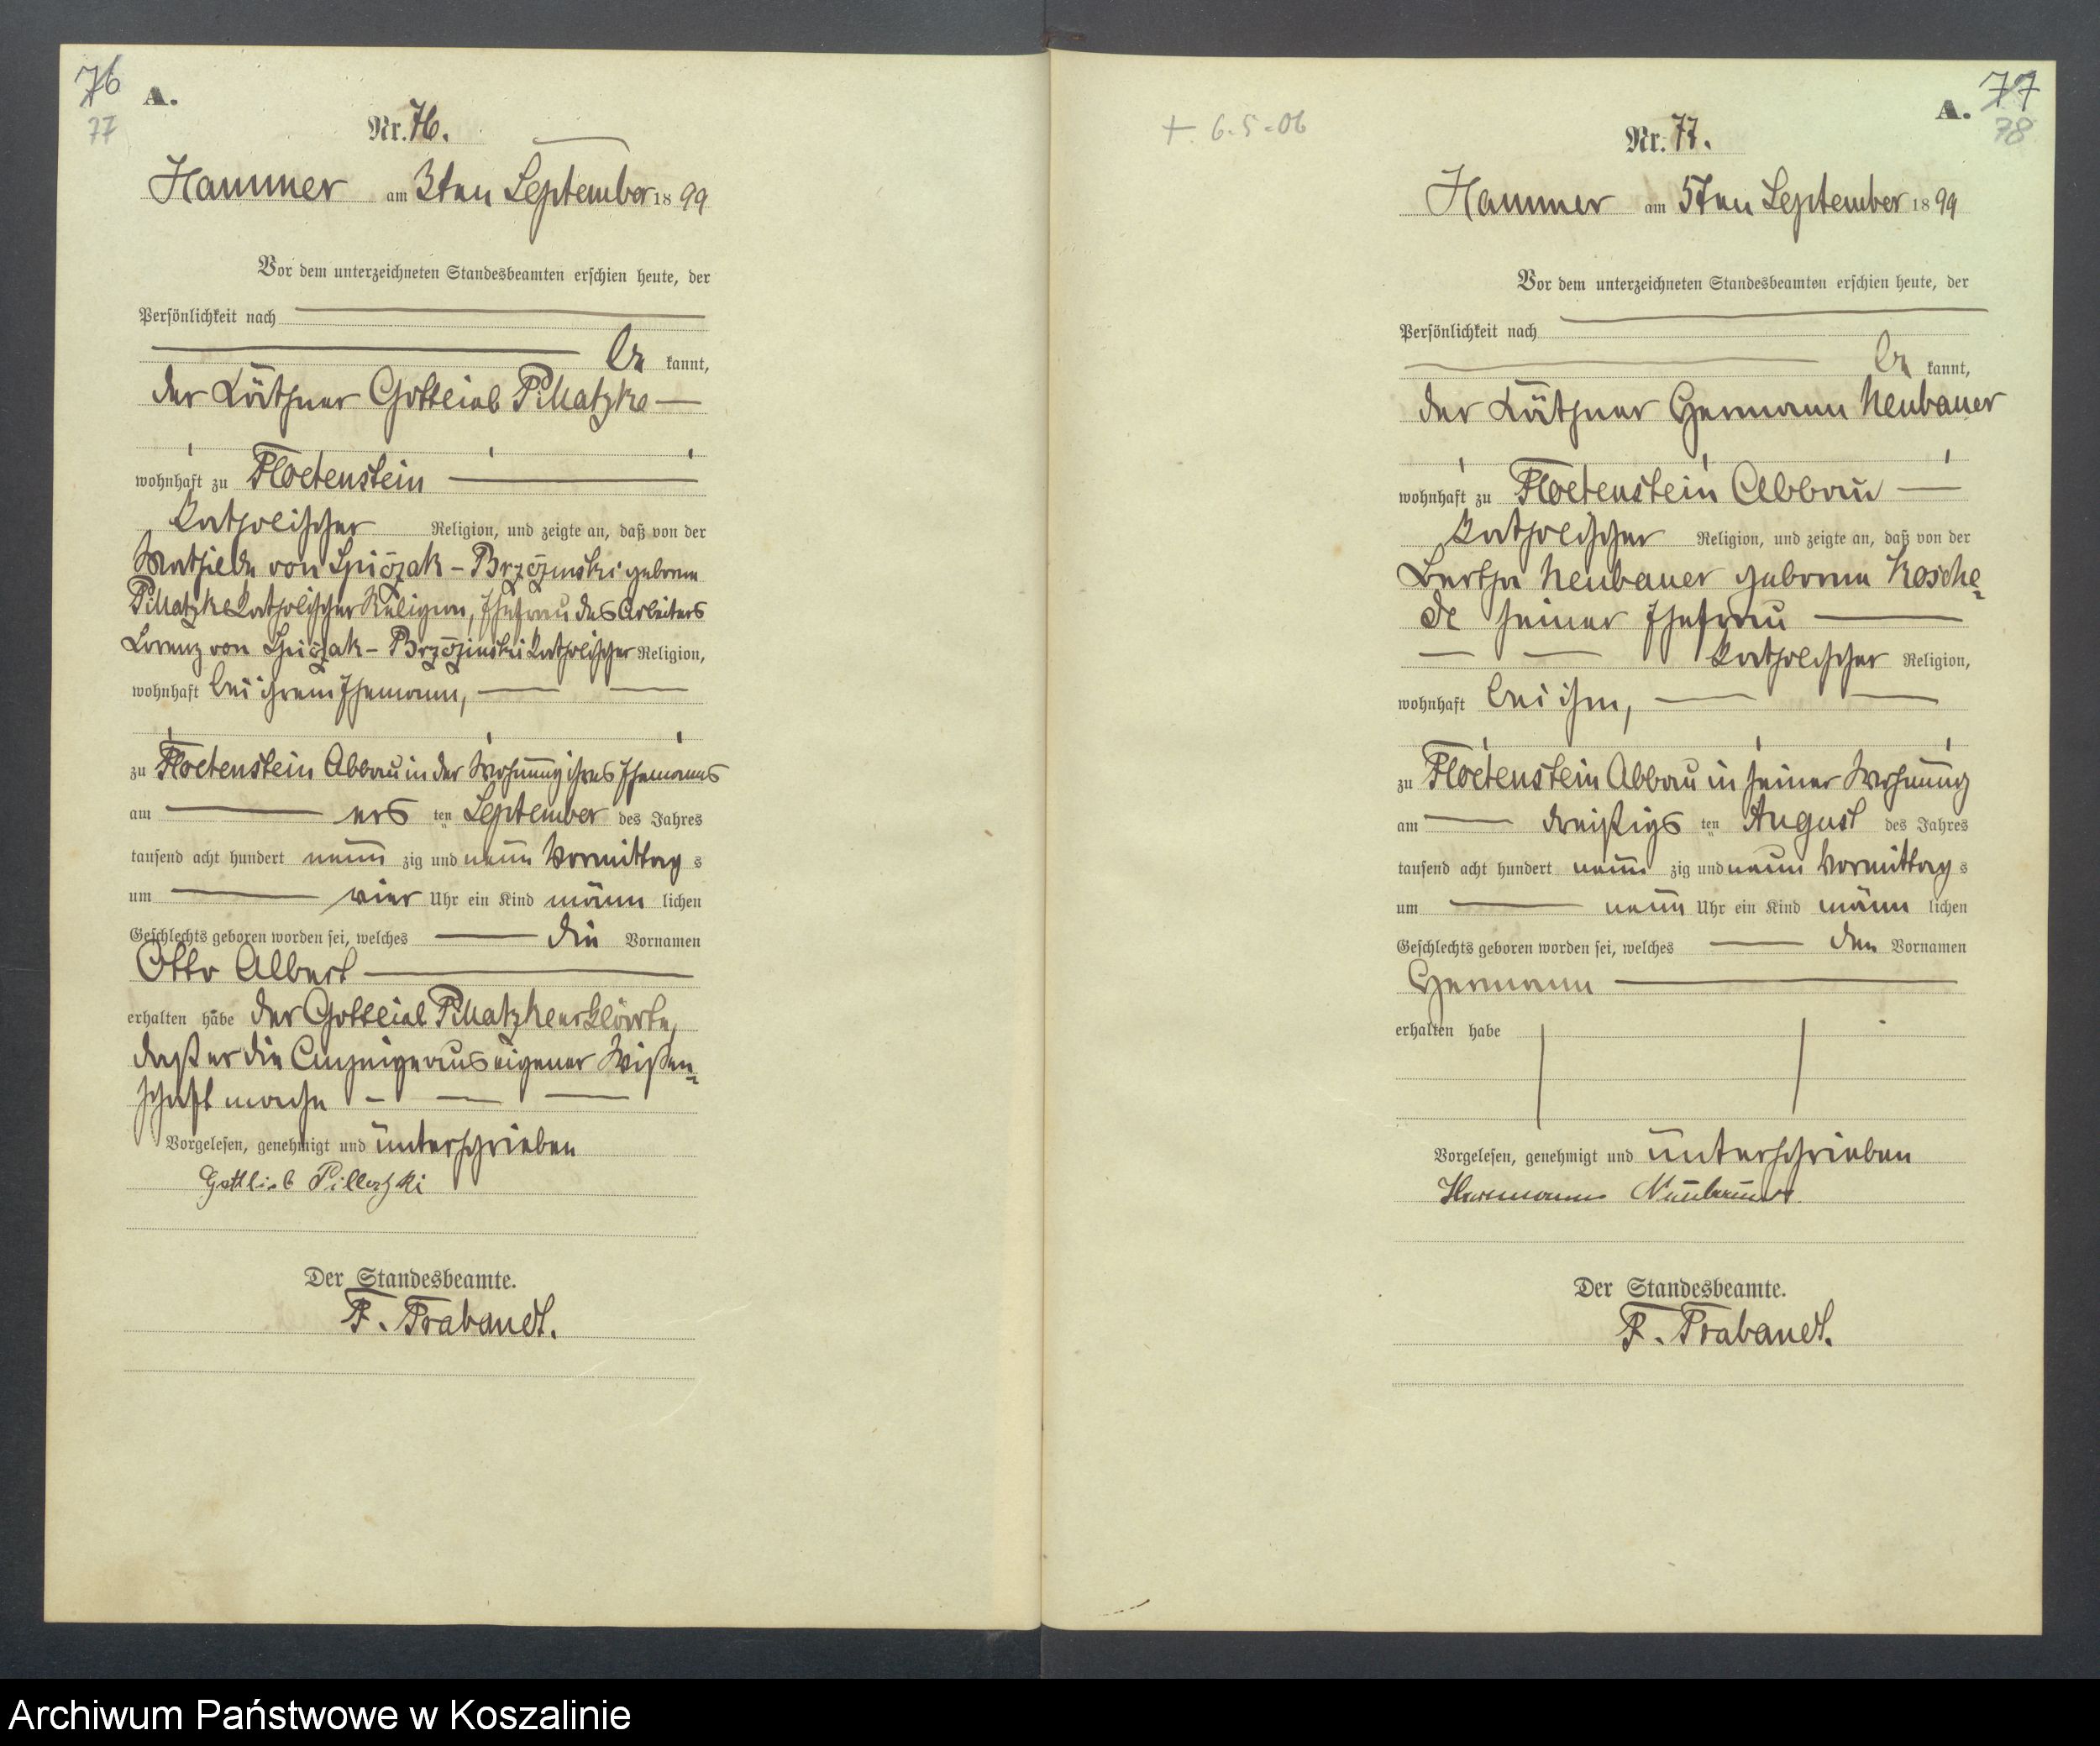 76
77
A.
Nr. 76.
Hammer am 3ten September 1899
Vor dem unterzeichneten Standesbeamten erschien heute, der
Persönlichkeit nach
er kannt,
der Käthner Gottlieb Pillatzke
wohnhaft zu Floetenstein
katholischer Religion, und zeigte an, daß von der
Mathilde von Spiczak-Brzezinski geborne
Pillatzke katholischer Religion, Ehefrau des Arbeiters
Lorenz von Spiczak-Brzezinski katholischer Religion,
wohnhaft bei ihrem Ehemann,
zu Floetenstein Abbau in der Wohnung ihres Ehemanns
am ers ten September des Jahres
tausend acht hundert neun zig und neun Vormittag s
um vier Uhr ein Kind männ lichen
Geschlechts geboren worden sei, welches die Vornamen
Otto Albert
erhalten habe der Gottlieb Pillatzke erklärte,
daß er die Anzeige aus eigener Wißen-
schaft mache
Vorgelesen, genehmigt und unterschrieben
Gottlieb Pillatzki
Der Standesbeamte.
F. Trabandt.
+ 6.5.06
A.
77
78
Nr. 77.
Hammer am 5ten September 1899
Vor dem unterzeichneten Standesbeamten erschien heute, der
Persönlichkeit nach
er kannt,
der Käthner Hermann Neubauer
wohnhaft zu Floetenstein Abbau
katholischer Religion, und zeigte an, daß von der
Bertha Neubauer geborne Kosche-
de seiner Ehefrau
katholischer Religion,
wohnhaft bei ihm,
zu Floetenstein Abbau in seiner Wohnung
am dreißigs ten August des Jahres
tausend acht hundert neun zig und neun Vormittag s
um neun Uhr ein Kind männ lichen
Geschlechts geboren worden sei, welches den Vornamen
Hermann
erhalten habe
Vorgelesen, genehmigt und unterschrieben
Hermann Neubauer
Der Standesbeamte.
F. Trabandt.
Archiwum Państwowe w Koszalinie